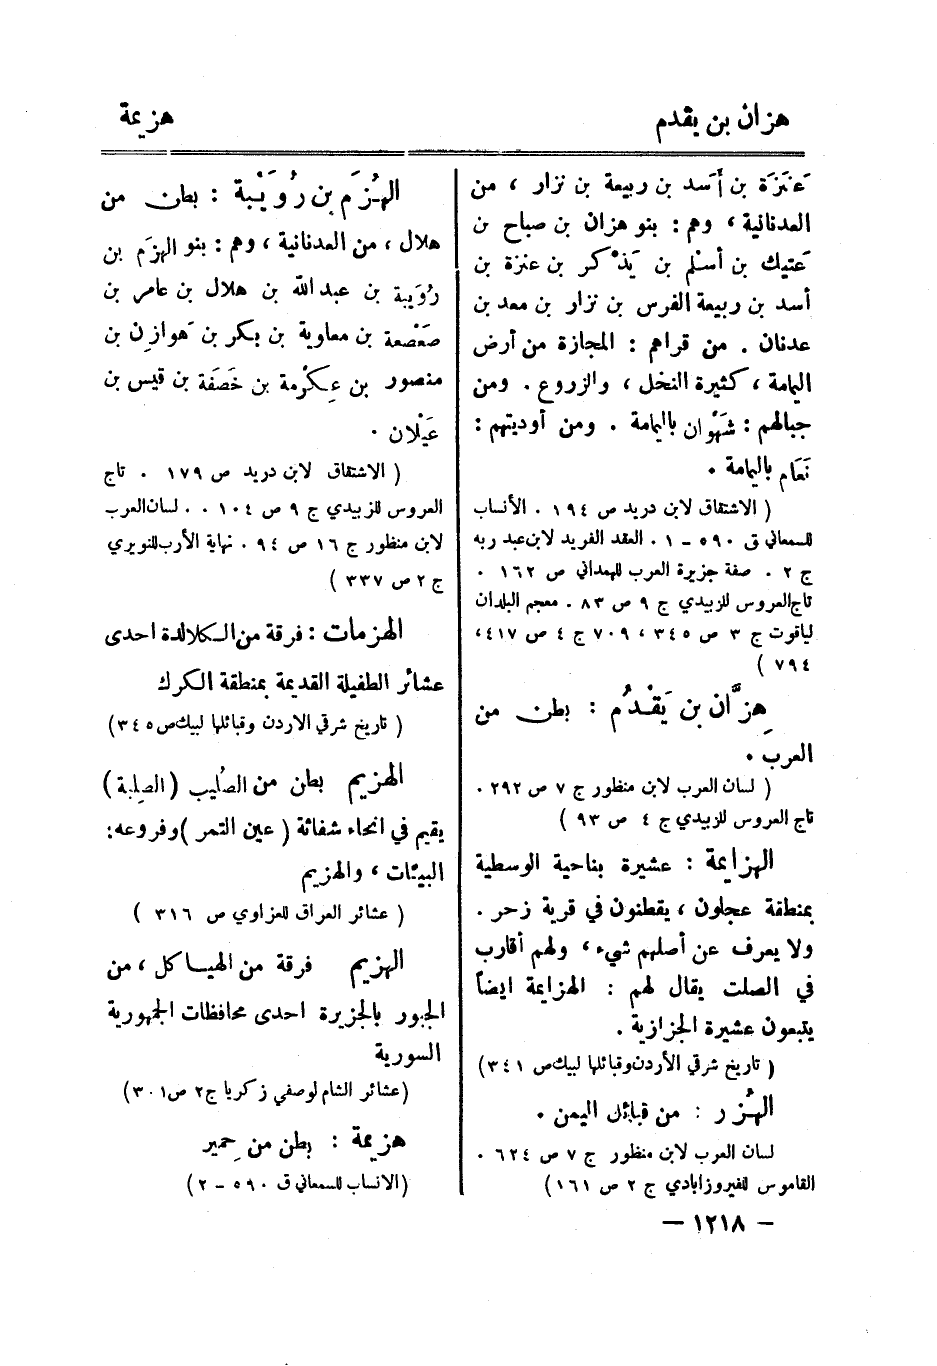 هزان بن يقدم
هزيمة
عَنَزَة بن أَسد بن ربيعة بن نزار ، من
العدنانية ، وهم : بنو هزان بن صباح بن
عَتيك بن أسْلم بن يَذْكر بن عنزة بن
أسد بن ربيعة الفرس بن نزار بن معد بن
عدنان . من قراهم : المجازة من أرض
اليمامة ، كثيرة النخل ، والزروع . ومن
جبالهم : شَهْوان باليمامة . ومن أوديتهم :
نَعَام باليمامة .
( الاشتقاق لابن دريد ص ١٩٤ . الأنساب
للسمعاني ق ٥٩٠ – ١ . العقد الفريد لابن عبد ربه
ج ٢ . صفة جزيرة العرب للهمداني ص ١٦٢ .
تاج العروس للزبيدي ج ٩ ص ٨٣ . معجم البلدان
لياقوت ج ٣ ص ٣٤٥ ، ٧٠٩ ج ٤ ص ٤١٧ ،
٧٩٤ )
هِزَّان بن يَقْدُم : بطن من
العرب .
( لسان العرب لابن منظور ج ٧ ص ٢٩٢ .
تاج العروس للزبيدي ج ٤ ص ٩٣ )
الهزايمة : عشيرة بناحية الوسطية
بمنطقة عجلون ، يقطنون في قرية زحر .
ولا يعرف عن أصلهم شيء ، ولهم أقارب
في الصلت يقال لهم : الهزايمة ايضاً
يتبعون عشيرة الجزازية .
( تاريخ شرقي الأردن وقبائلها لبيك ص ٣٤١ )
الهُزر : من قبائل اليمن .
لسان العرب لابن منظور ج ٧ ص ٦٢٤ .
القاموس للفيروزابادي ج ٢ ص ١٦١ )
الهُزَم بن رُوَيْبة : بطن من
هلال ، من العدنانية ، وهم : بنو الهزَم بن
رُوَيبة بن عبد الله بن هلال بن عامر بن
صَعْصعة بن معاوية بن بكر بن هَوازِن بن
منصور بن عِكْرمة بن خَصَفَة بن قيس بن
عَيْلان .
( الاشتقاق لابن دريد ص ١٧٩ . تاج
العروس للزبيدي ج ٩ ص ١٠٤ . . لسان العرب
لابن منظور ج ١٦ ص ٩٤ . نهاية الأرب للنويري
ج ٢ ص ٣٣٧ )
الهزمات : فرقة من الكلالدة احدى
عشائر الطفيلة القديمة بمنطقة الكرك
( تاريخ شرقي الاردن وقبائلها لبيك ص ٣٤٥ )
الهزيم بطن من الصُليب ( الصِلبة )
يقيم في انحاء شفاثة ( عين التمر ) وفروعه :
البيئات ، والهزيم
( عشائر العراق للعزاوي ص ٣١٦ )
الهزيم فرقة من الهياكل ، من
الجبور بالجزيرة احدى محافظات الجمهورية
السورية
( عشائر الشام لوصفي زكريا ج ٢ ص ٣٠١ )
هزيمة : بطن من حِمير
( الانساب للسمعاني ق ٥٩٠ – ٢ )
– ١٢١٨ –